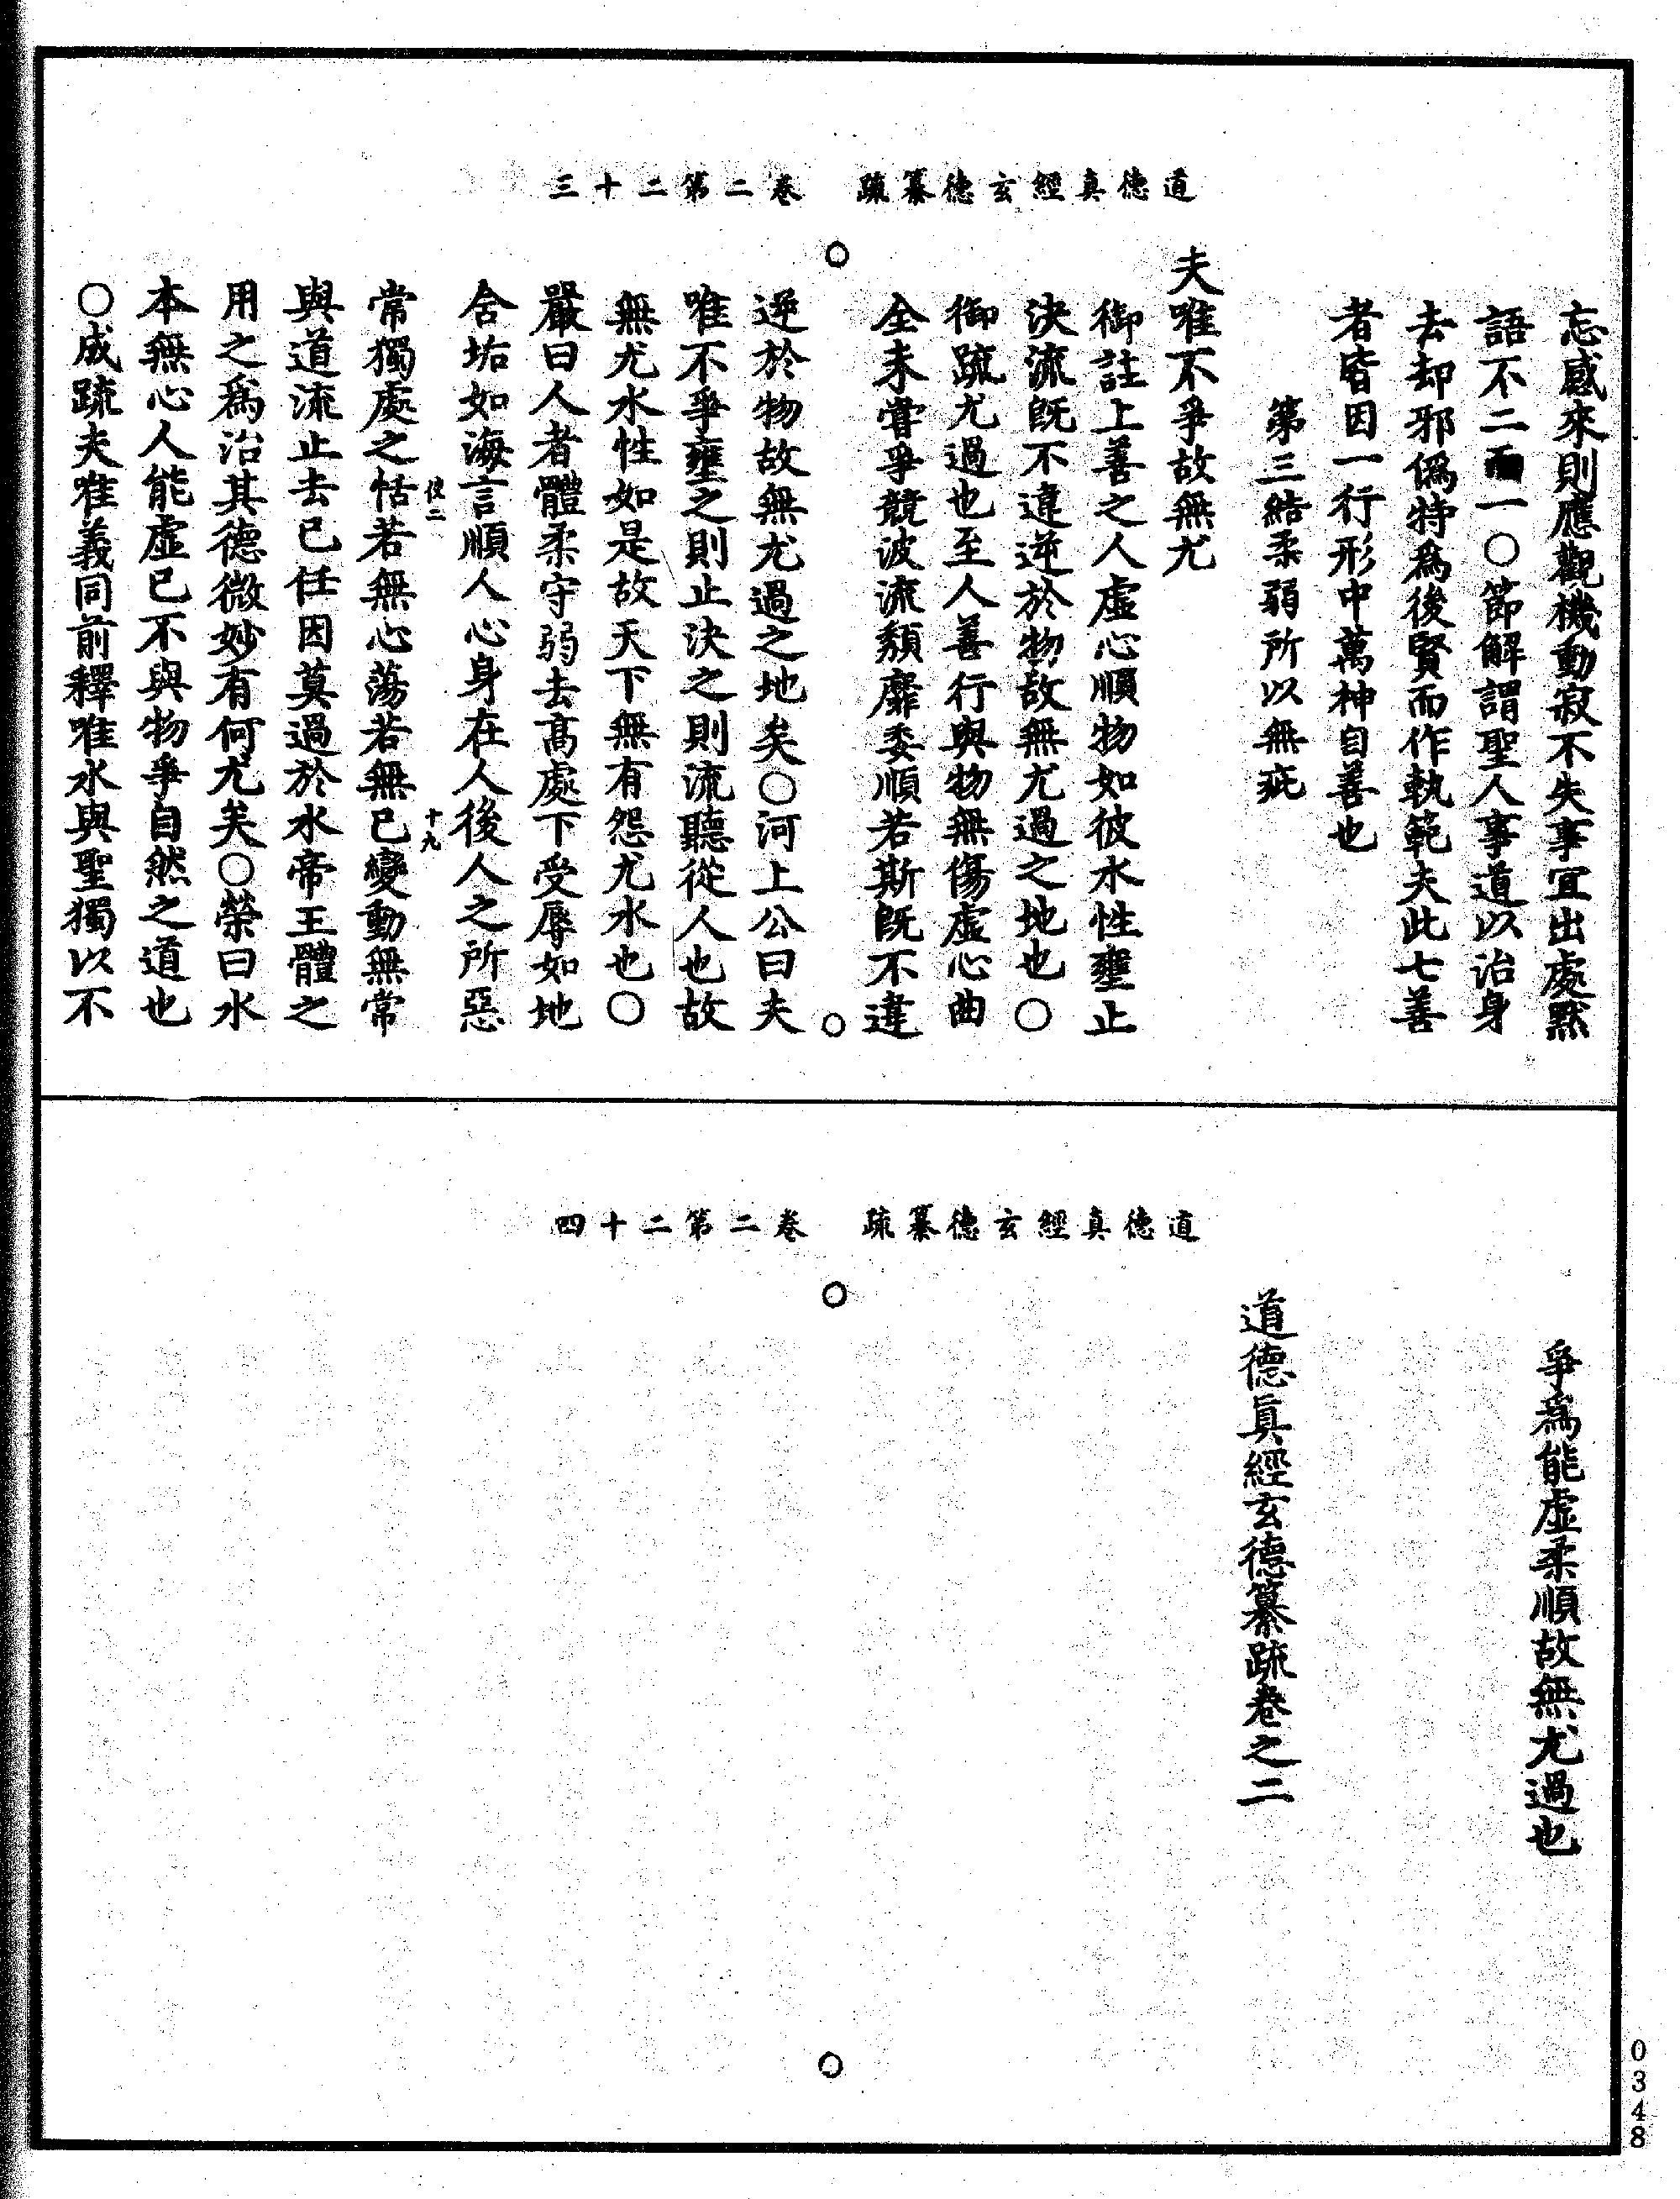 道德真經玄德纂疏　卷二第二十三
忘感來則應觀機動寂不失事宜出處默
語不二而一○節解謂聖人事道以治身
去却邪僞特爲後賢而作執範夫此七善
者皆因一行形中萬神自善也
第三結柔弱所以無疵
夫唯不爭故無尤
御註上善之人虛心順物如彼水性壅止
決流旣不違逆於物故無尤過之地也○
御疏尤過也至人善行與物無傷虛心曲
全未嘗爭競波流頽靡委順若斯旣不違
逆於物故無尤過之地矣○河上公曰夫
唯不爭壅之則止決之則流聽從人也故
無尤水性如是故天下無有怨尤水也○
嚴曰人者體柔守弱去髙處下受辱如地
含垢如海言順人心身在人後人之所惡
使二　十九
常獨處之恬若無心蕩若無已變動無常
與道流止去已任因莫過於水帝王體之
用之爲治其德微妙有何尤矣○榮曰水
本無心人能虛已不與物爭自然之道也
○成疏夫唯義同前釋唯水與聖獨以不
道德真經玄德纂疏　卷二第二十四
爭爲能虛柔順故無尤過也
道德眞經玄德纂疏卷之二
0348